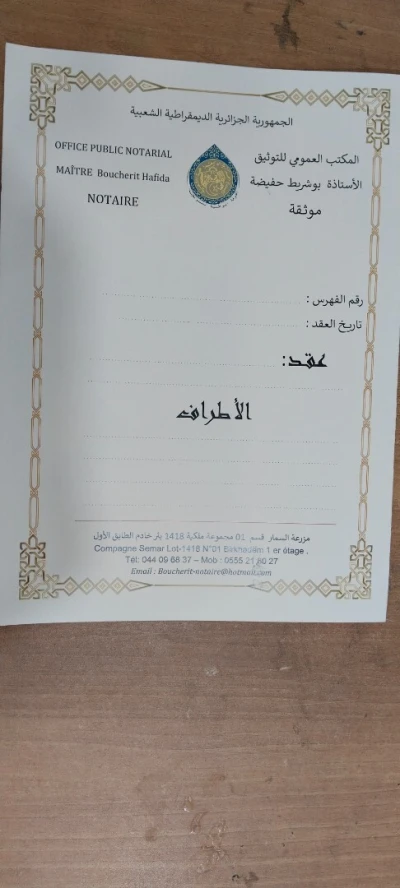 الجمهورية الجزائرية الديمقراطية الشعبية
OFFICE PUBLIC NOTARIAL
MAÎTRE Boucherit Hafida
NOTAIRE
المكتب العمومي للتوثيق
الأستاذة بوشريط حفيضة
موثقة
رقم الفهرس :
تاريخ العقد :
عقد:
الأطراف
مزرعة السمار قسم 01 مجموعة ملكية 1418 بئر خادم الطابق الأول
Compagne Semar Lot-1418 N°01 Birkhadem 1 er étage .
Tél: 044 09 68 37 – Mob : 0555 21 80 27
Email : Boucherit-notaire@hotmail.com